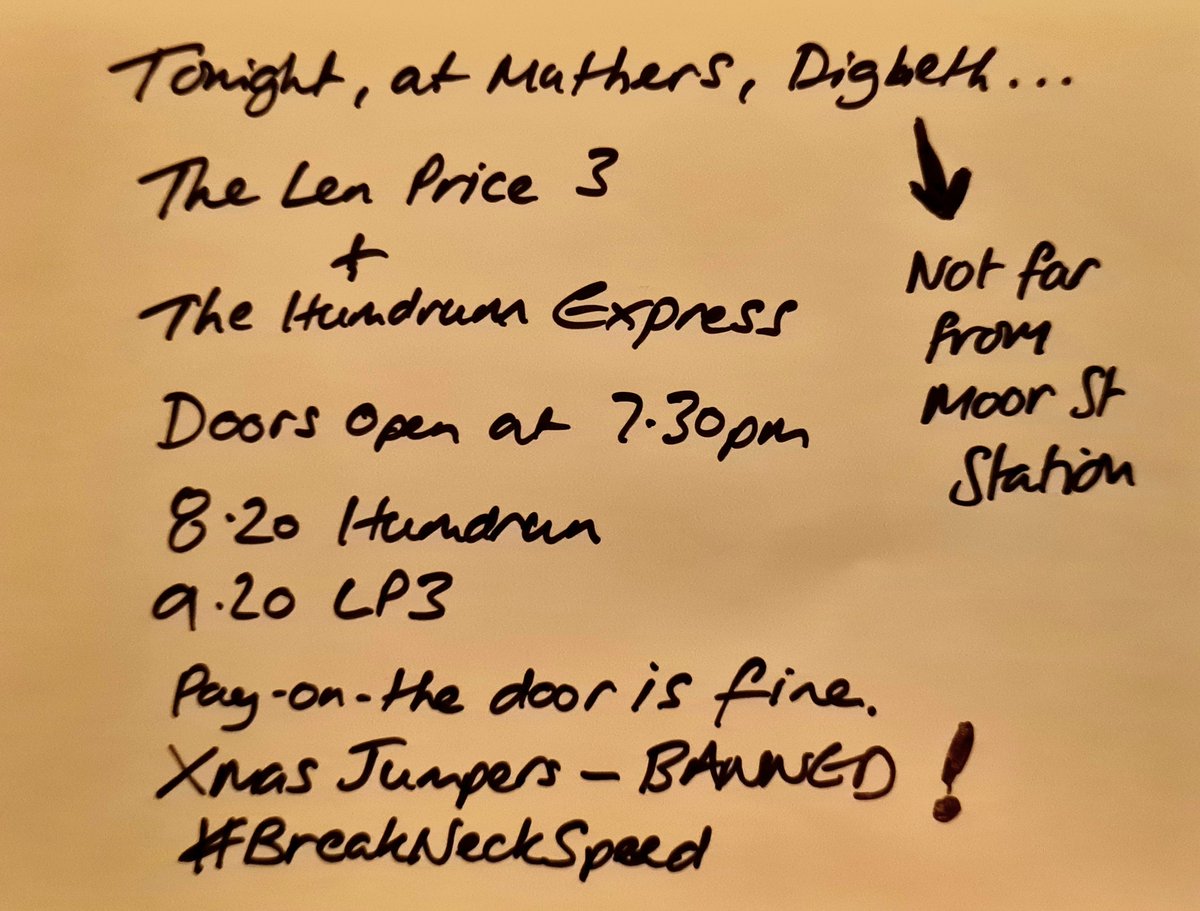 Tonight, at Mathers, Digbeth...
The Len Price 3
+
The Humdrum Express
Doors open at 7.30pm
8.20 Humdrum
9.20 LP3
Pay-on-the door is fine.
Xmas Jumpers - BANNED!
#BreakNeckSpeed
Not far
from
Moor St
Station